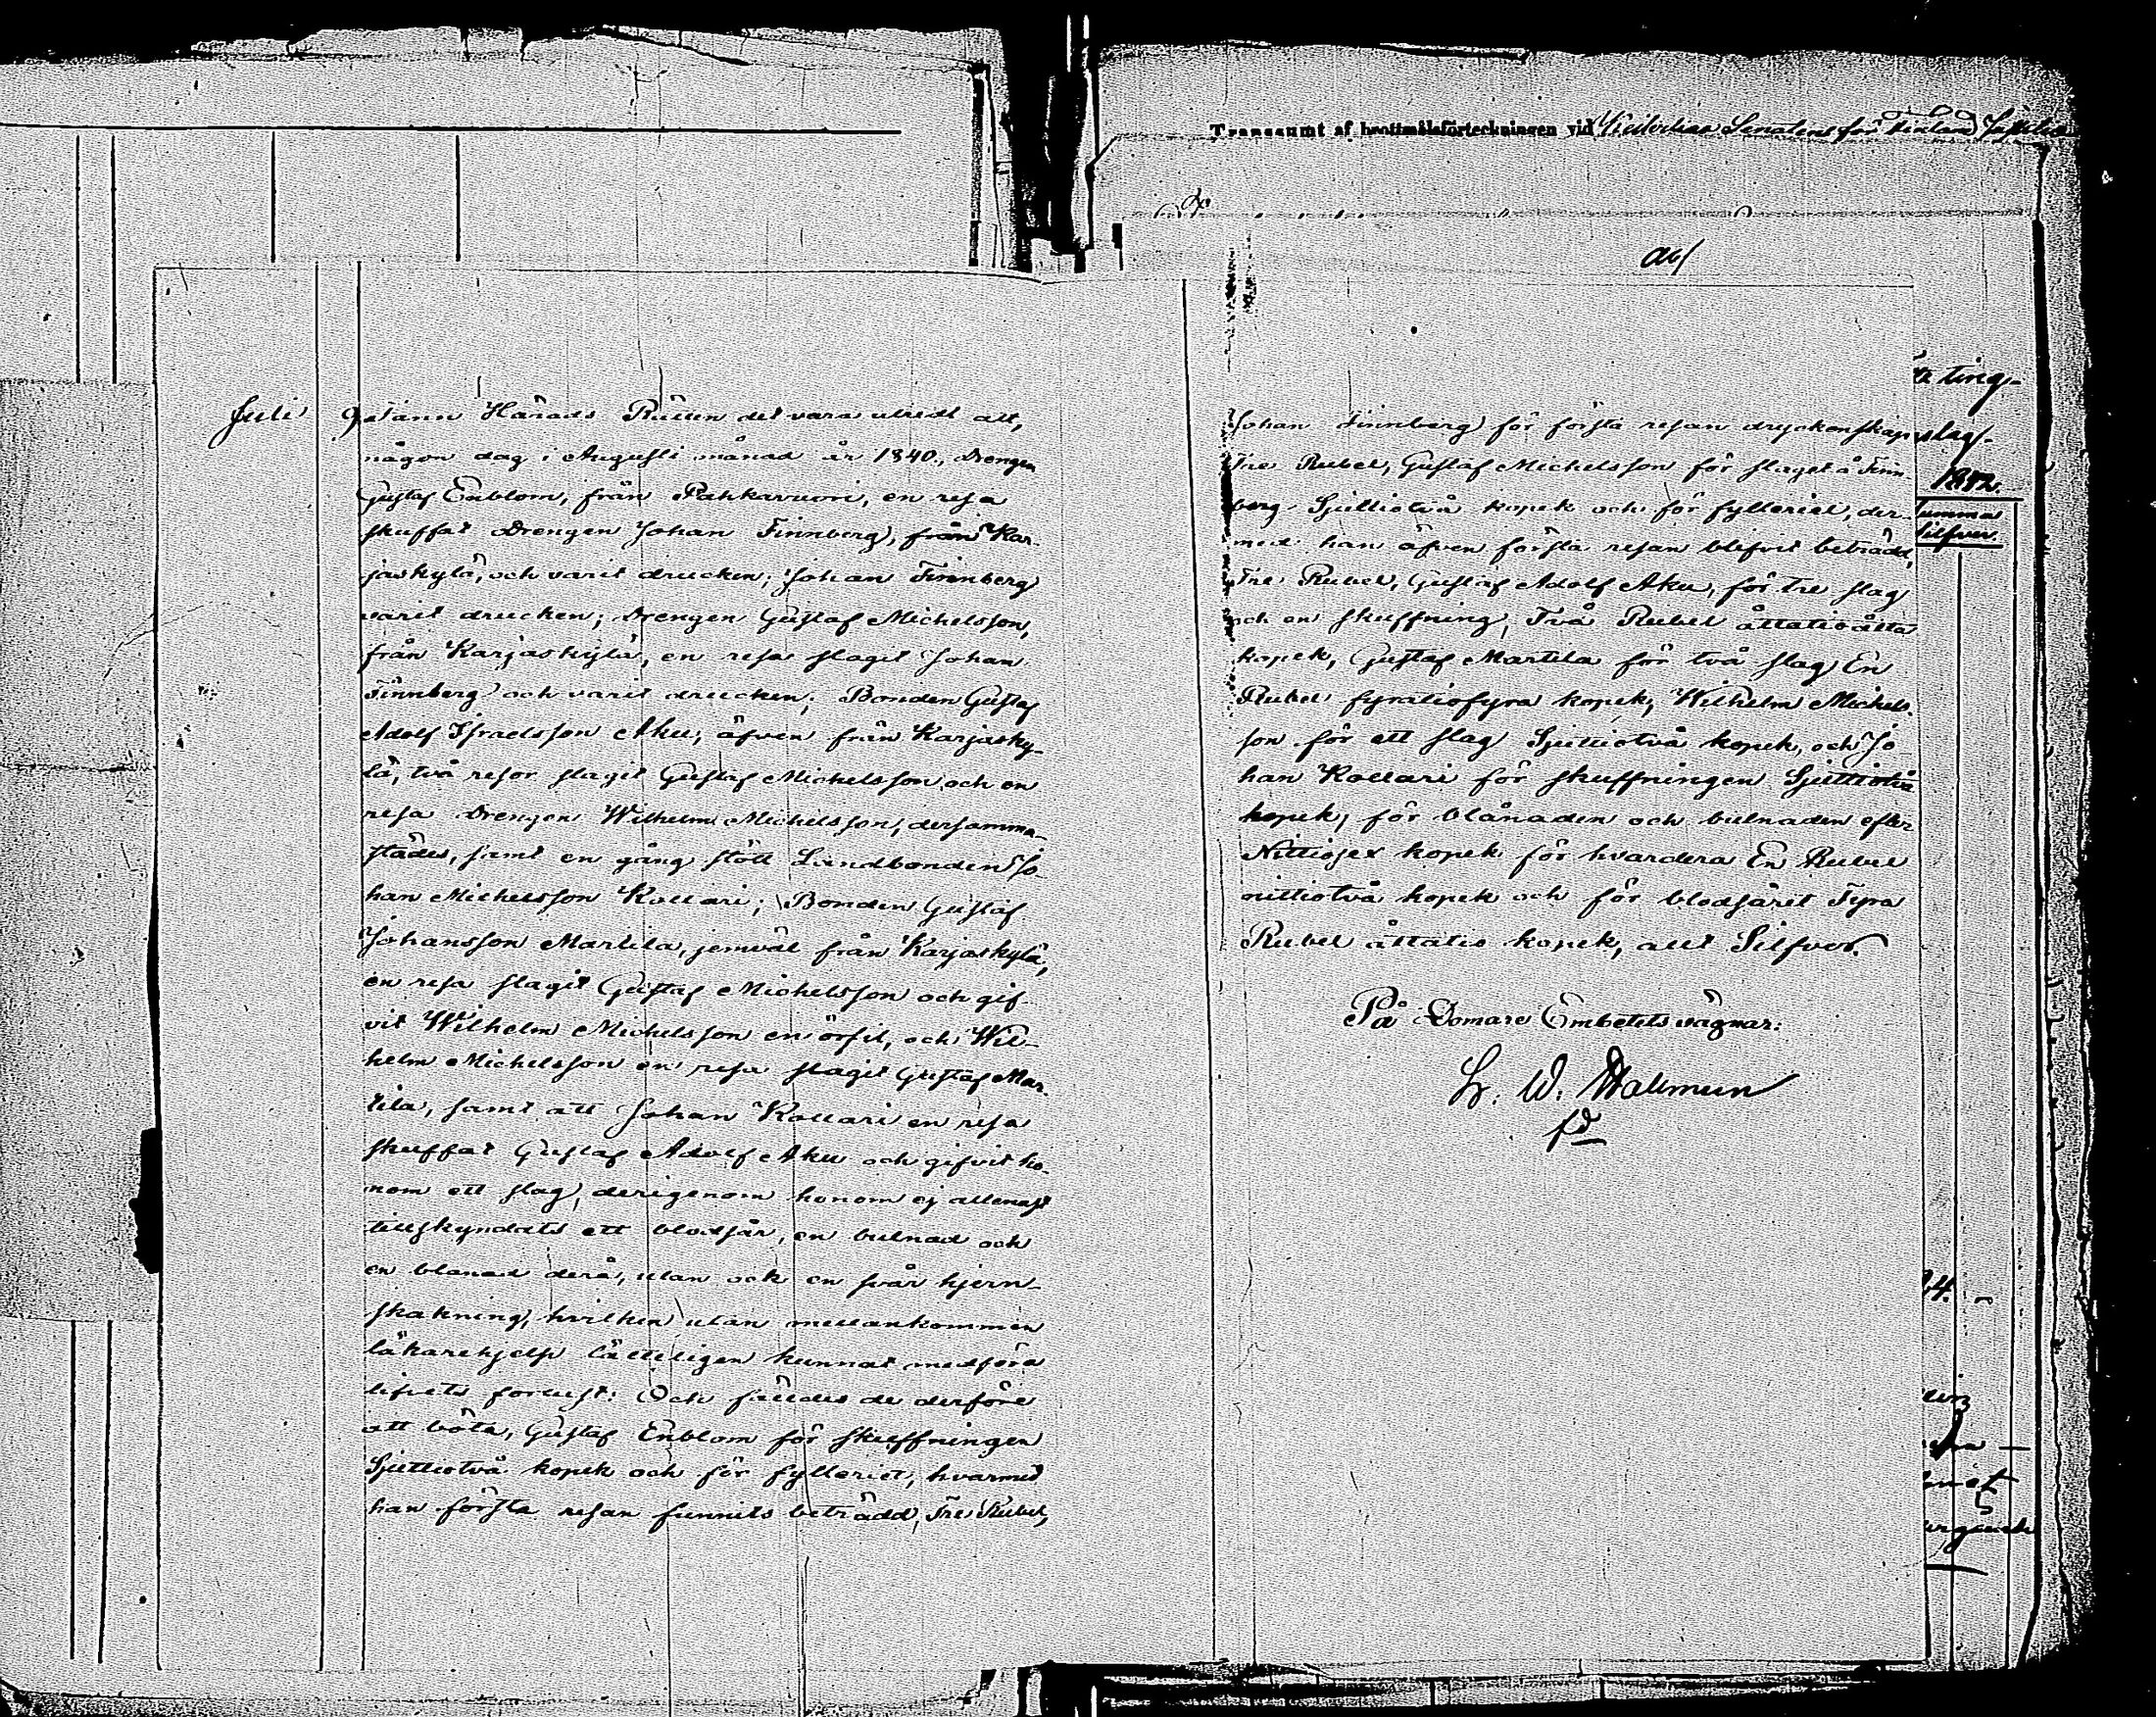 Transsumt af brottmålsförteckningen vid Keiserliga Senatens för Finland Justitie
Juli 9 Fann Härads Rätten det vara utredt att,
någon dag i Augusti månad år 1840., Drengen
Gustaf Enblom, från Pahkavuori, en resa
skuffat Drengen Johan Finnberg, från Kar-
jaskylä, och varit drucken; Johan Finnberg
varit drucken; Drengen Gustaf Michelsson,
från Karjaskylä, en resa slagit Johan
Finnberg och varit drucken; Bonden Gustaf
Adolf Israelsson Aku, äfven från Karjasky-
lä, två resor slagit Gustaf Michelsson och en
resa Drengen Wilhelm Michelsson, dersamma-
städes, samt en gång stött Landbonden Jo-
han Michelsson Kollari; Bonden Gustaf
Johansson Martila, jemväl från Karjaskylä,
en resa slagit Gustaf Michelsson och gif-
vit Wilhelm Michelsson en örfil, och Wil-
helm Michelsson en resa slagit Gustaf Mar-
tila, samt att Johan Kollari en resa
skuffat Gustaf Adolf Aku och gifvit ho-
nom ett slag, derigenom honom ej allenast
tillskyndats ett blodsår, en bulnad och
en blånad derå, utan ock en svår hjern-
skakning, hvilken utan mellankommen
läkarehjelp lätteligen kunnat medföra
lifvets förlust: Och fälldes de derföre
att böta, Gustaf Enblom för skuffningen
Sjuttiotvå kopek och för fylleriet, hvarmed
han första resan funnits beträdd, Tre Rubel,
Johan Finnberg för första resan dryckenskap
Tre Rubel, Gustaf Michelsson för slaget å Finn-
berg Sjuttiotvå kopek och för fylleriet, der-
med han äfven första resan blifvit beträdd,
Tre Rubel, Gustaf Adolf Aku, för tre slag
och en skuffning, Två Rubel åttatioåtta
kopek, Gustaf Martila för två slag En
Rubel fyratiofyra kopek, Wilhelm Michels-
son för ett slag Sjuttiotvå kopek, och Jo-
han Kollari för skuffningen Sjuttiotvå
kopek, för blånaden och bulnaden efter
Nittiosex kopek för hvardera En Rubel
nittiotvå kopek och för blodsåret Fyra
Rubel åttatio kopek, allt Silfver.
På Domare Embetets vägnar:
ting-
slag
1842.
Summa
Silfver.